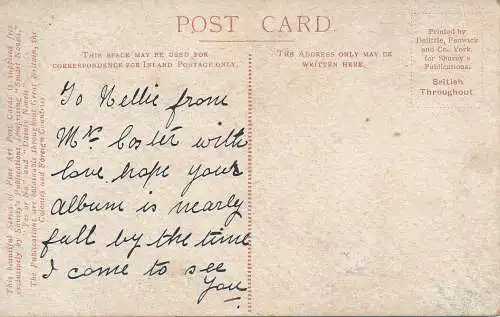 POST CARD
THIS SPACE MAY BE USED FOR
CORRESPONDENCE FOR INLAND POSTAGE ONLY.
THE ADDRESS ONLY MAY BE
WRITTEN HERE.
Printed by
Delittle, Fenwick
and Co., York,
for Shurey's
Publications.
British
Throughout.
To Nellie from
Mrs Coster with
love hope your
Album is nearly
full by the time
I come to see
You
This beautiful Series of Fine Art Post Cards is supplied free
exclusively by Shurey's Publications, comprising "Smart Novels,"
"Yes or No," and "Dainty Novels."
The Publications are obtainable throughout Great Britain, the
Colonies and Foreign Countries